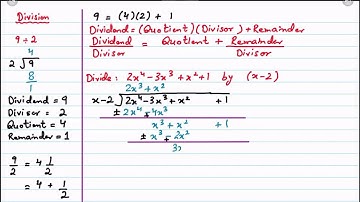 Division
9 ÷ 2
4
2 √9
8
1
Dividend = 9
Divisor = 2
Quotient = 4
Remainder = 1
9/2 = 4 1/2
= 4 + 1/2
9 = (4)(2) + 1
Dividend = (Quotient)(Divisor) + Remainder
Dividend/Divisor = Quotient + Remainder/Divisor
Divide: 2x⁴-3x³+x²+1 by (x-2)
2x³+x²
x-2 √2x⁴-3x³+x² +1
± 2x⁴ ∓ 4x³
x³+x² +1
± x³ ∓ 2x²
3x